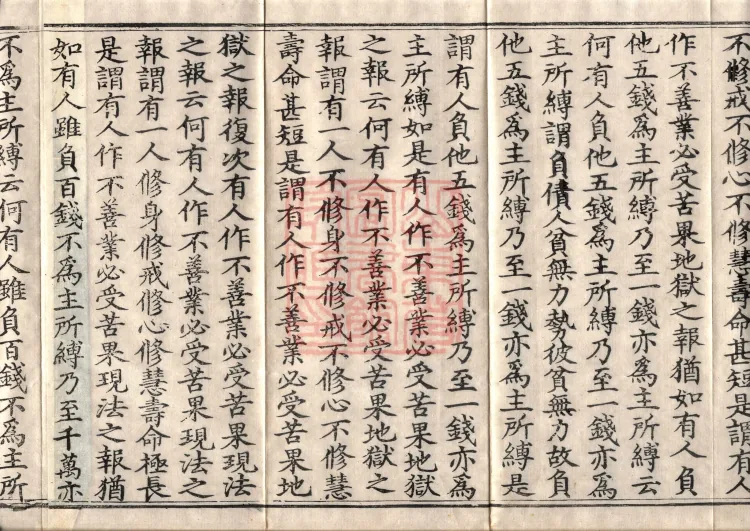 不修戒不修心不修慧壽命甚短是謂有人
作不善業必受苦果地獄之報猶如有人負
他五錢為主所縛乃至一錢亦為主所縛云
何有人負他五錢為主所縛乃至一錢亦為
主所縛謂負債人貧無力勢彼貧無力故負
他五錢為主所縛乃至一錢亦為主所縛是
謂有人負他五錢為主所縛乃至一錢亦為
主所縛如是有人作不善業必受苦果地獄
之報云何有人作不善業必受苦果地獄之
報謂有一人不修身不修戒不修心不修慧
壽命甚短是謂有人作不善業必受苦果地
獄之報復次有人作不善業必受苦果現法
之報云何有人作不善業必受苦果現法之
報謂有一人修身修戒修心修慧壽命極長
是謂有人作不善業必受苦果現法之報猶
如有人雖負百錢不為主所縛乃至千萬亦
不為主所縛云何有人雖負百錢不為主所